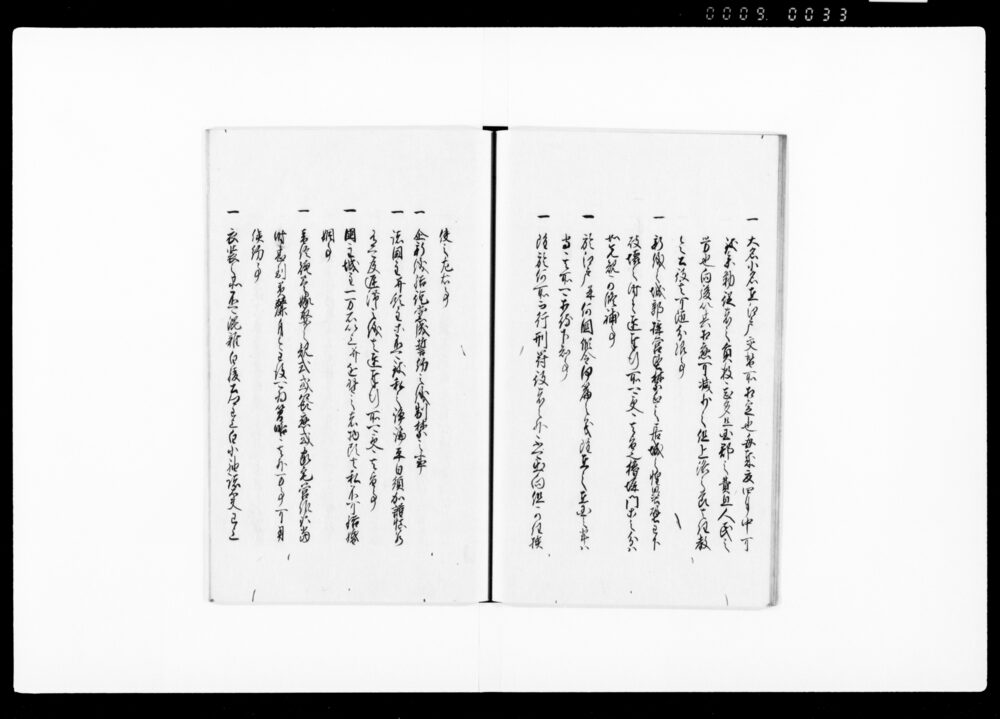 0009. 0033
一 大名小名在江戸交替所相定也毎歳夏四月中可
致参勤従者之員数近来甚多且国郡之費且人民之
労也向後以其相応可減少之但上洛之節者任教
令公役者可随分限事
一 新儀之城郭構営堅禁止之居城之隍塁石壁以下
敗壊之時達奉行所可受其旨也櫓塀門等之分者
如先規可修補事
一 於江戸并何国仮令何篇之事雖有之在国之輩者
守其所可相待下知事
一 雖於何所而行刑罰役者之外不可出向但可任検
使之左右事
一 企新儀結徒党成誓約之儀制禁之事
一 諸国主并領主等不可致私之諍論平日須加謹慎也
若有可及遅滞之儀者達奉行所可受其旨事
一 国主城主一万石以上并近習之者物頭者私不可結婚
姻事
一 音信贈答嫁娶之規式或饗応或家宅営作等当
時甚至華麗自今以後可為簡略其外万事可用
倹約事
一 衣装之品不可混雑白綾公卿以上白小袖諸大夫以上